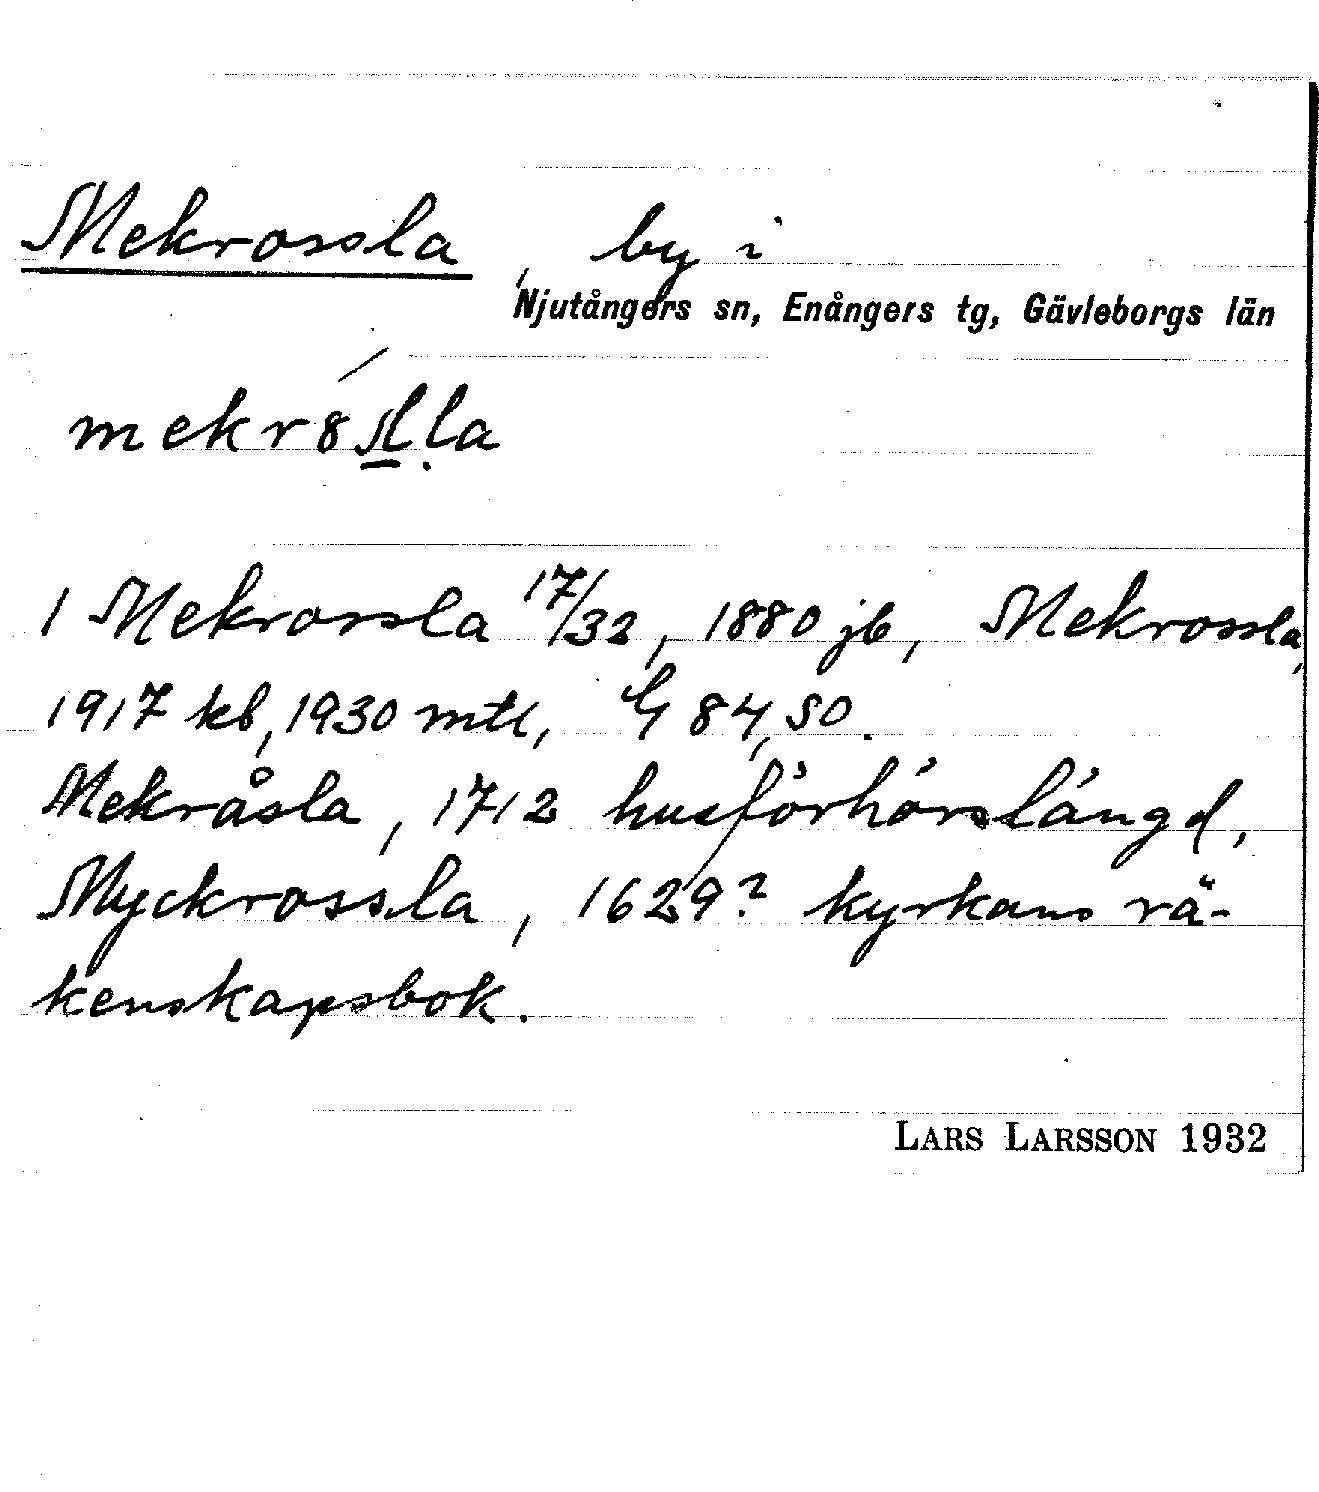 Mekrossla, by i
Njutångers sn, Enångers tg, Gävleborgs län
1 Mekrossla 17/32, 1880 jb, Mekrossla,
1917 kb, 1930 mtl, G 84, SO.
Mekråsla, 1712 husförhörslängd,
Myckrossla, 1629? kyrkans rä-
kenskapsbok.
LARS LARSSON 1932